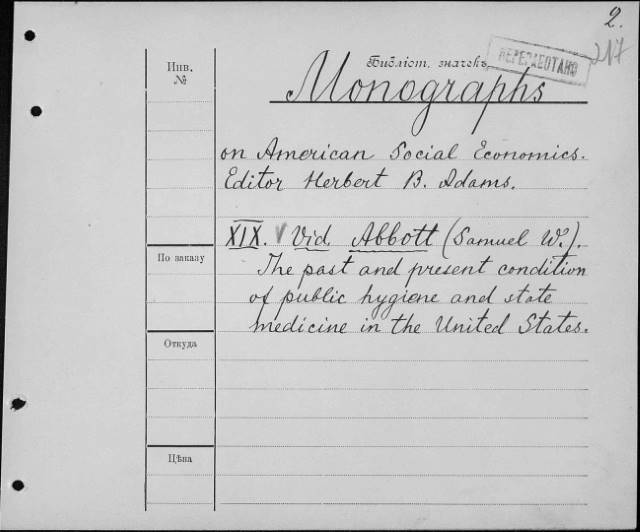 2.
217
Инв.
№
Библіот. значекъ
ПЕРЕМЕОТАНО
Monographs
on American Social Economics.
Editor Herbert B. Adams.
XIX. Vid. Abbott (Samuel W.).
По заказу
The past and present condition
of public hygiene and state
medicine in the United States.
Откуда
Цѣна